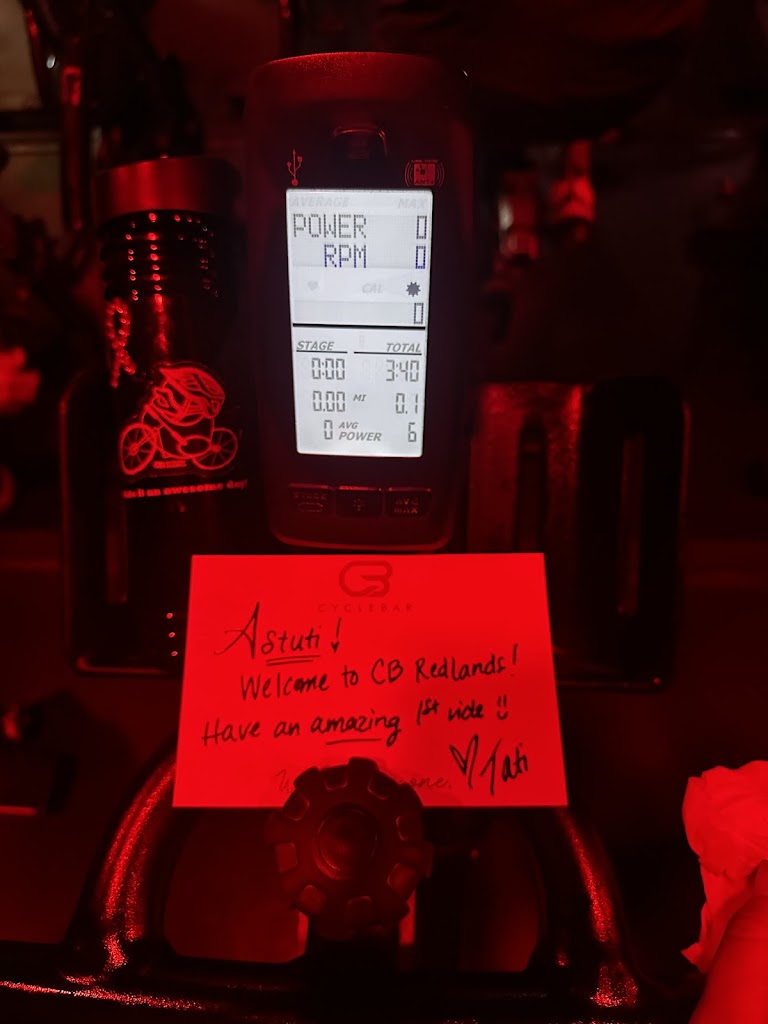 AVERAGE MAX
POWER 0
RPM 0
CAL
0
STAGE TOTAL
0:00 3:40
0.00 MI 0.1
0 AVG POWER 6
STAGE AVG MAX
an awesome day!
CB
CYCLEBAR
Astuti!
Welcome to CB Redlands!
Have an amazing 1st ride
Tati